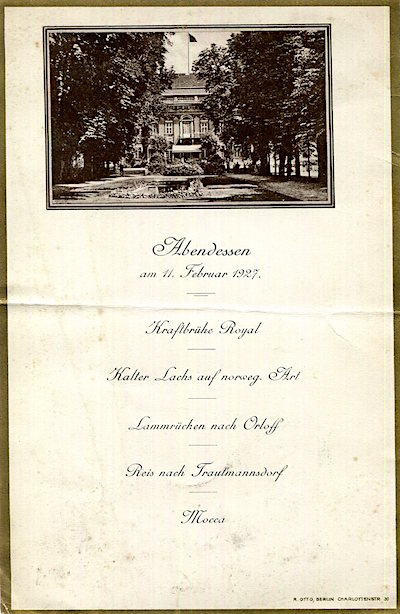 Abendessen
am 11. Februar 1927.
Kraftbrühe Royal
Kalter Lachs auf norweg. Art
Lammrücken nach Orloff
Reis nach Trautmannsdorf
Mocca
R. OTTO, BERLIN CHARLOTTENSTR. 30